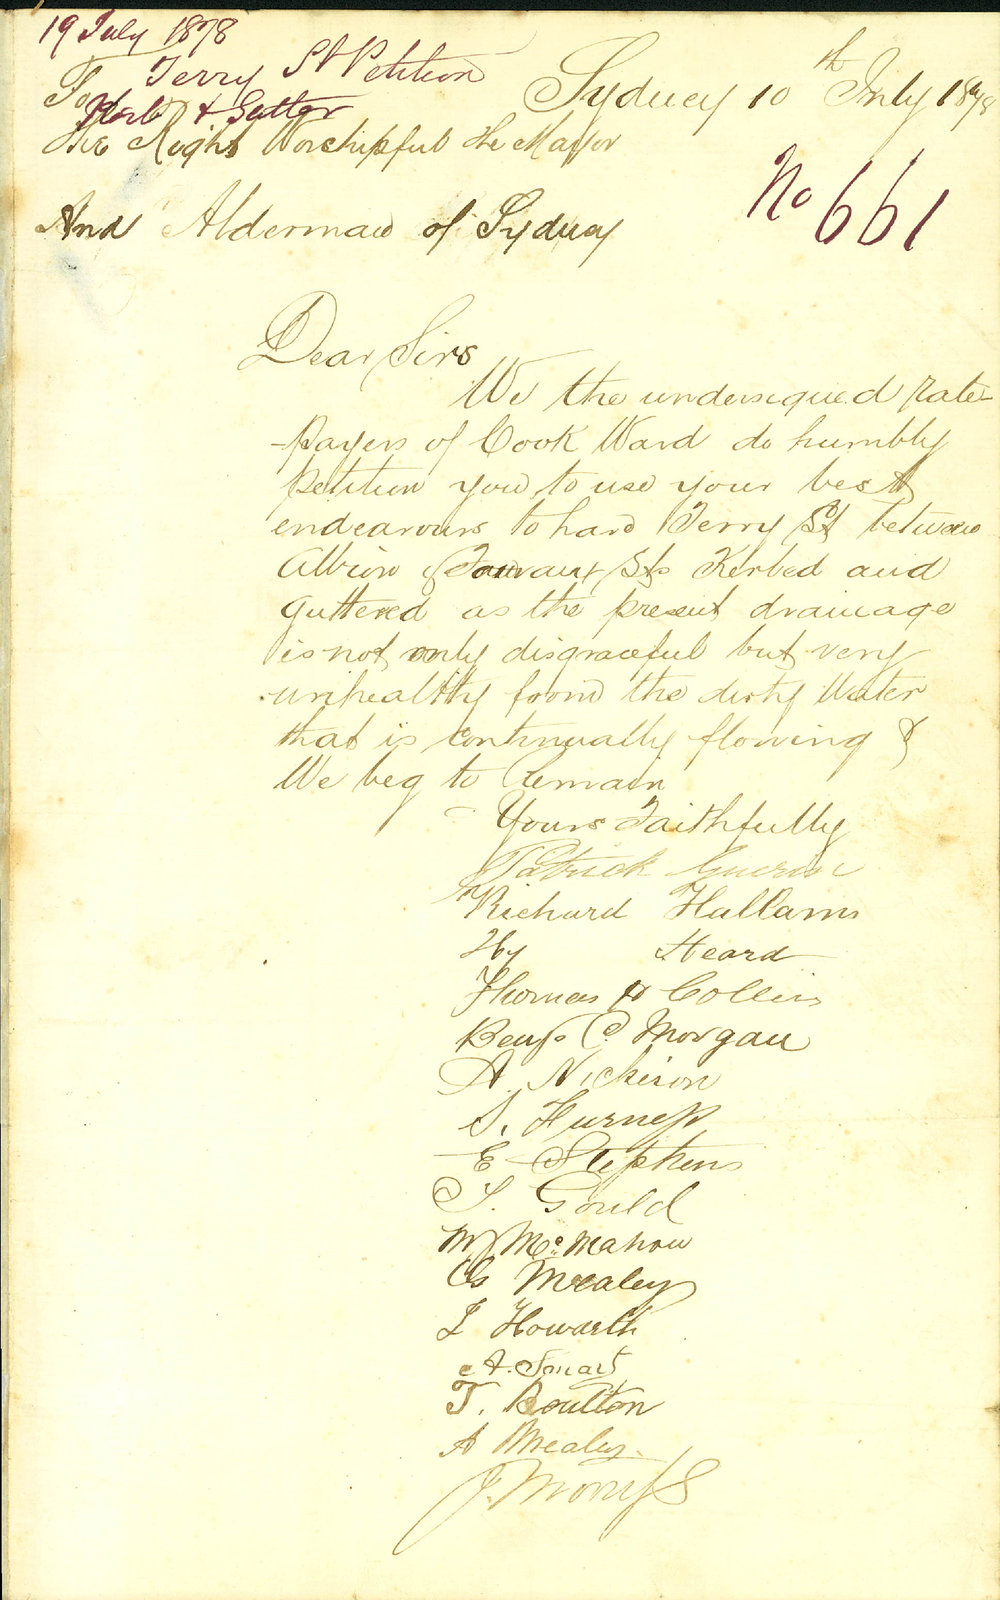 19 July 1878
Terry St Petition
Kerb & Gutter
Sydney 10th July 1878
To
The Right Worshipful the Mayor
No 661
And Alderman of Sydney
Dear Sirs
We the undersigued rate
-payers of Cook Ward do humbly
petition you to use your best
endeavours to have Terry St between
Albion & Foveaux Sts Kerbed and
guttered as the present drainage
is not only disgraceful but very
unhealthy from the dirty Water
that is continually flowing &
We beg to Remain
Yours Faithfully
Patrick Guerin
Richard Hallam
Hy Heard
Thomas Collins
Benj. C Morgan
A. Nickson
S. Furness
E Stephens
T. Gould
McMahon
Cs Mealey
J Howarth
A. Smart
T. Boulton
A Mealey